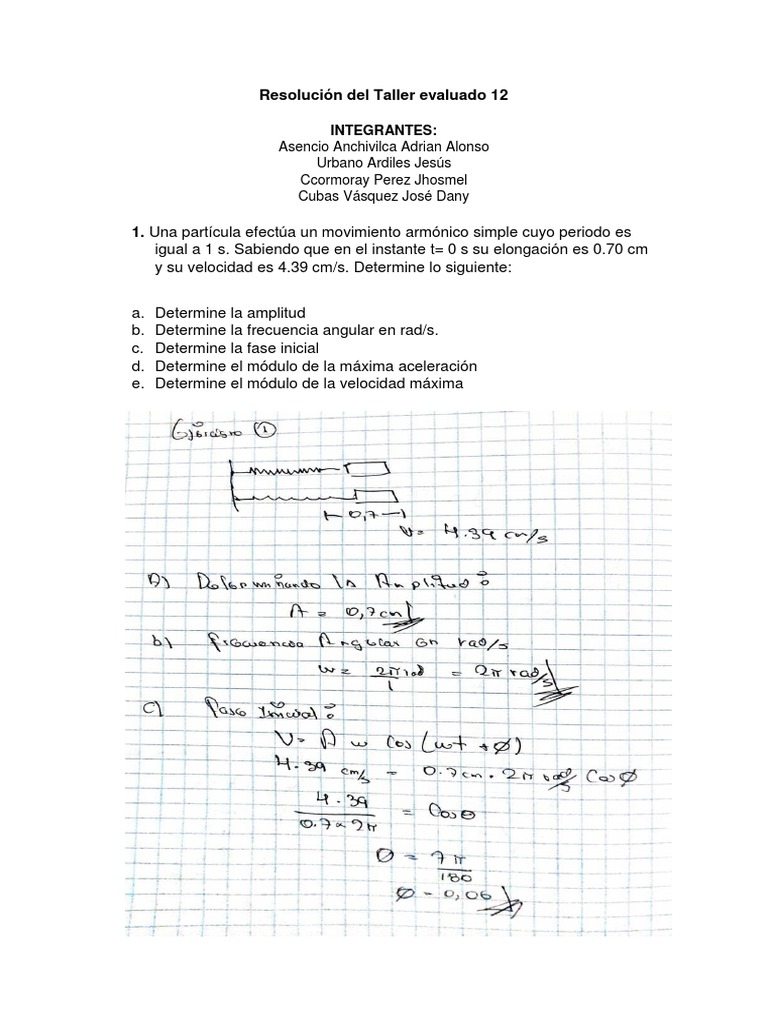 Resolución del Taller evaluado 12
INTEGRANTES:
Asencio Anchivilca Adrian Alonso
Urbano Ardiles Jesús
Ccormoray Perez Jhosmel
Cubas Vásquez José Dany
1. Una partícula efectúa un movimiento armónico simple cuyo periodo es
igual a 1 s. Sabiendo que en el instante t= 0 s su elongación es 0.70 cm
y su velocidad es 4.39 cm/s. Determine lo siguiente:
a. Determine la amplitud
b. Determine la frecuencia angular en rad/s.
c. Determine la fase inicial
d. Determine el módulo de la máxima aceleración
e. Determine el módulo de la velocidad máxima
Ejercicio 1
0,7
V= 4.39 cm/s
a) Determinando la Amplitud:
A = 0,7cm
b) frecuencia Angular en rad/s
w= 2π rad / 1 = 2π rad/s
c) Fase Inicial:
V= A w Cos (wt + Ø)
4.39 cm/s = 0.7cm. 2π rad/s Cos Ø
4.39 / 0.7 x 2π = Cos θ
θ = 7π / 180
Ø = 0,06